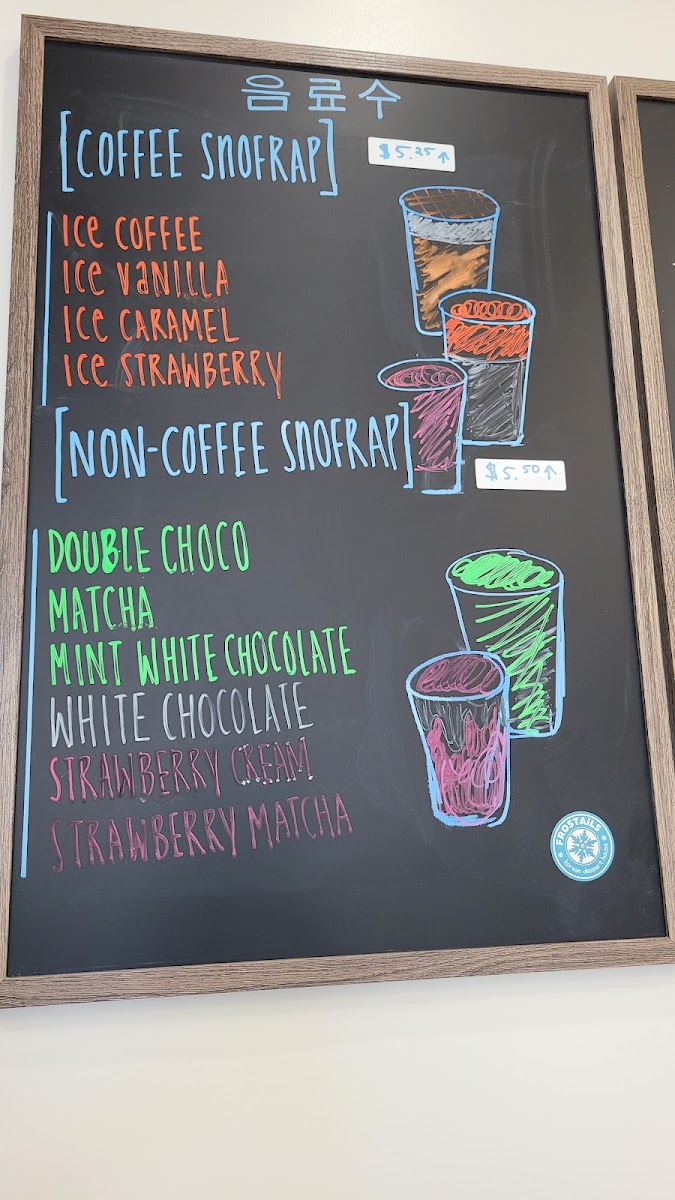 음료수
[COFFEE SNOFRAP]
$5.25↑
ICE COFFEE
ICE VANILLA
ICE CARAMEL
ICE STRAWBERRY
[NON-COFFEE SNOFRAP]
$5.50↑
DOUBLE CHOCO
MATCHA
MINT WHITE CHOCOLATE
WHITE CHOCOLATE
STRAWBERRY CREAM
STRAWBERRY MATCHA
FROSTAILS
korean dessert house